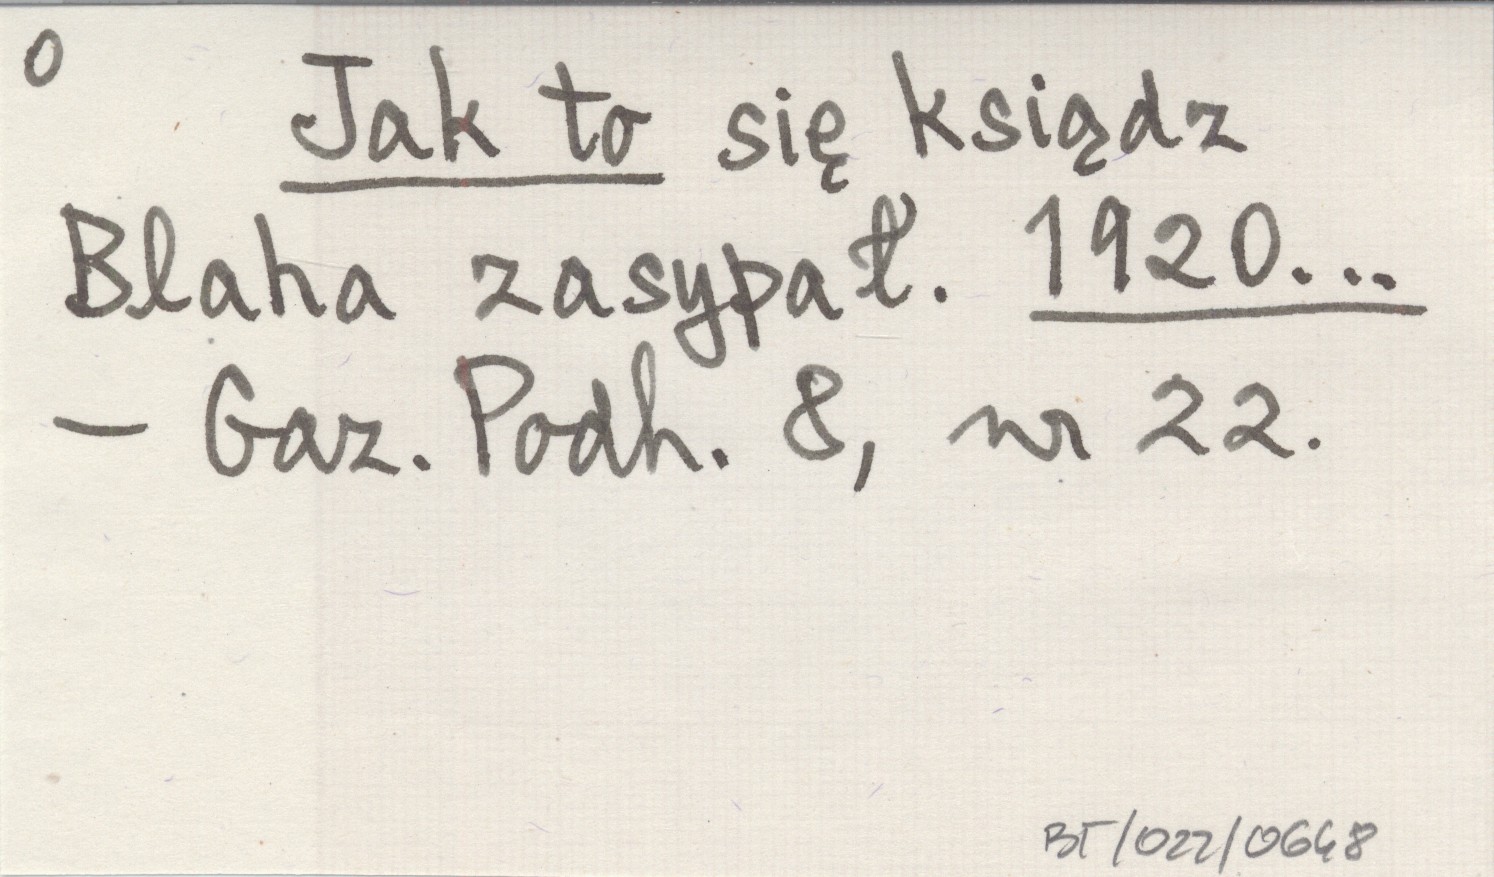 0
Jak to się ksiądz
Blaha zasypał. 1920...
- Gaz. Podh. 8, nr 22.
BT/022/0648